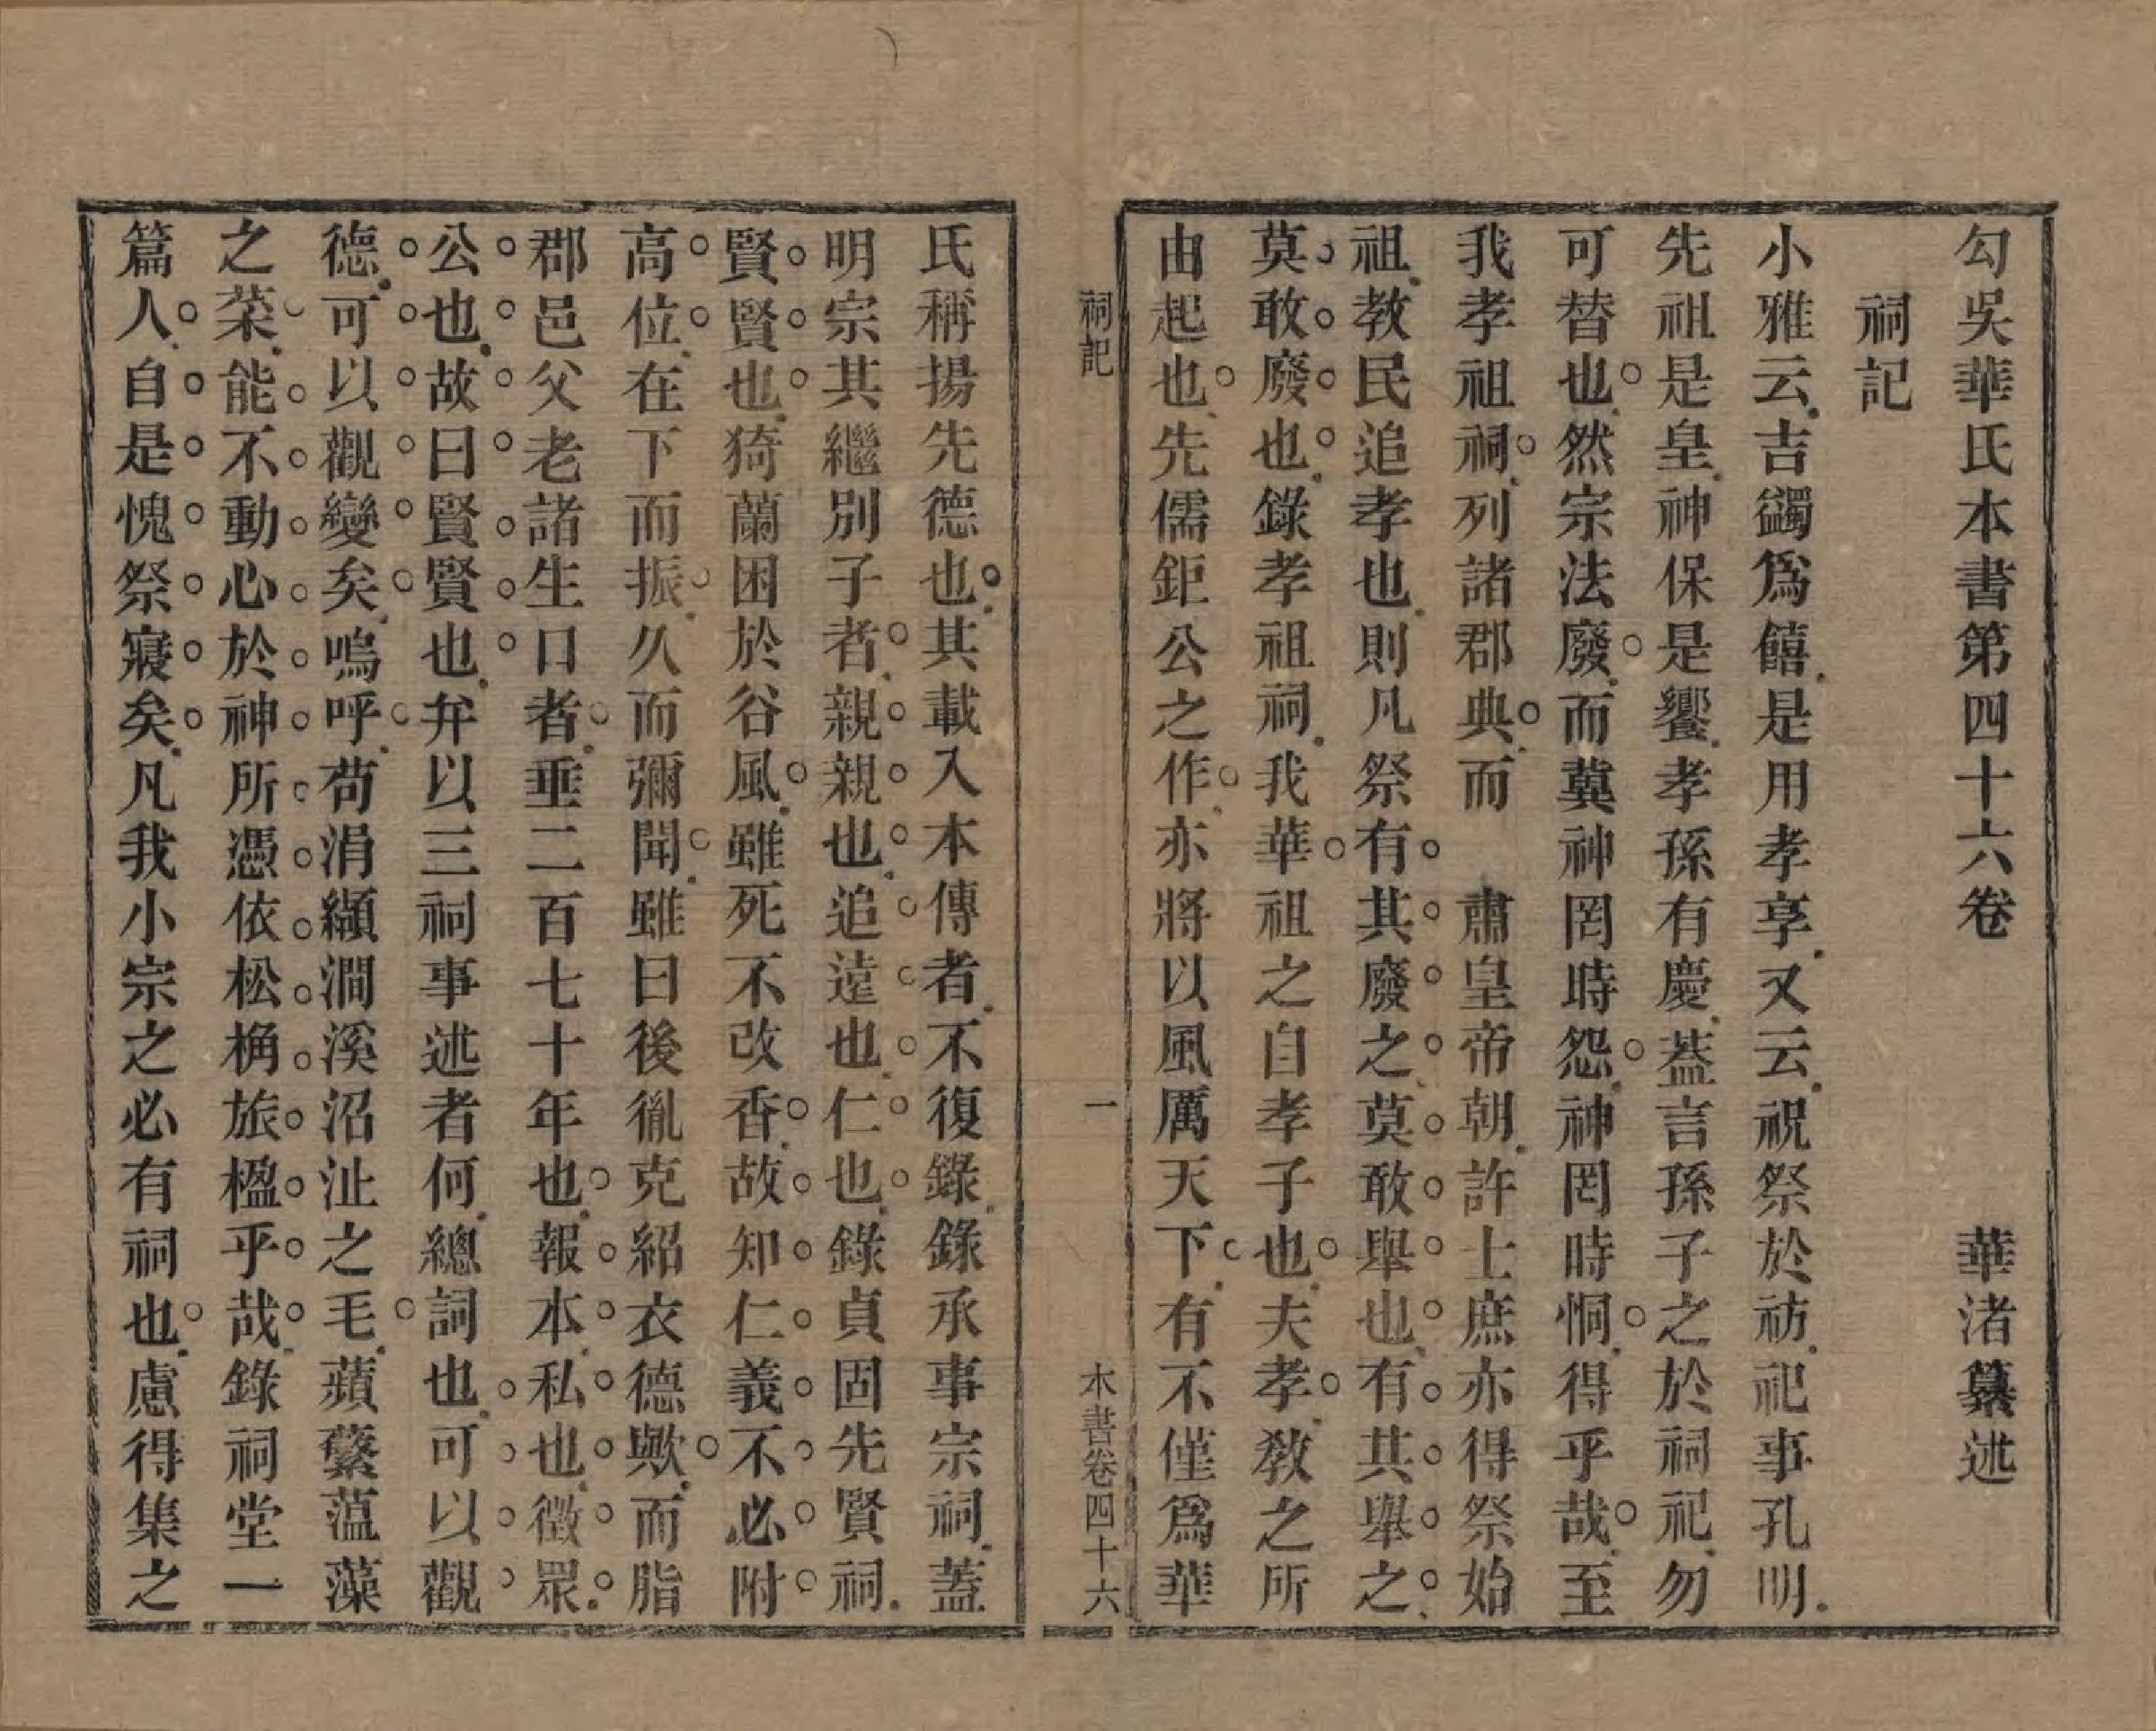 勾吳華氏本書第四十六卷 華渚纂述
祠記
小雅云吉蠲爲饎是用孝享又云祝祭於祊祀事孔明
先祖是皇神保是饗孝孫有慶葢言孫子之於祠祀勿
可替也然宗法廢而冀神罔時怨神罔時恫得乎哉至
我孝祖祠列諸郡典而 肅皇帝朝許士庶亦得祭始
祖教民追孝也則凡祭有其廢之莫敢舉也有其舉之
莫敢廢也錄孝祖祠我華祖之自孝子也夫孝教之所
由起也先儒鉅公之作亦將以風厲天下有不僅爲華
祠記 一 本書卷四十六
氏稱揚先德也其載入本傳者不復錄錄承事宗祠蓋
明宗其繼別子者親親也追遠也仁也錄貞固先賢祠
賢賢也猗蘭困於谷風雖死不改香故知仁義不必附
高位在下而振久而彌聞雖曰後胤克紹衣德歟而脂
郡邑父老諸生口者垂二百七十年也報本私也徵眾
公也故曰賢賢也弁以三祠事述者何總詞也可以觀
德可以觀變矣嗚呼苟涓纇澗溪沼沚之毛蘋蘩薀藻
之菜能不動心於神所憑依松桷旅楹乎哉錄祠堂一
篇人自是愧祭寢矣凡我小宗之必有祠也慮得集之